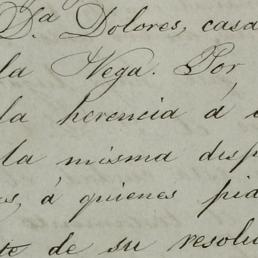 Dª Dolores, casa
la Vega. Por
la herencia á
la misma disp
es, á quienes pid
te de su resolu